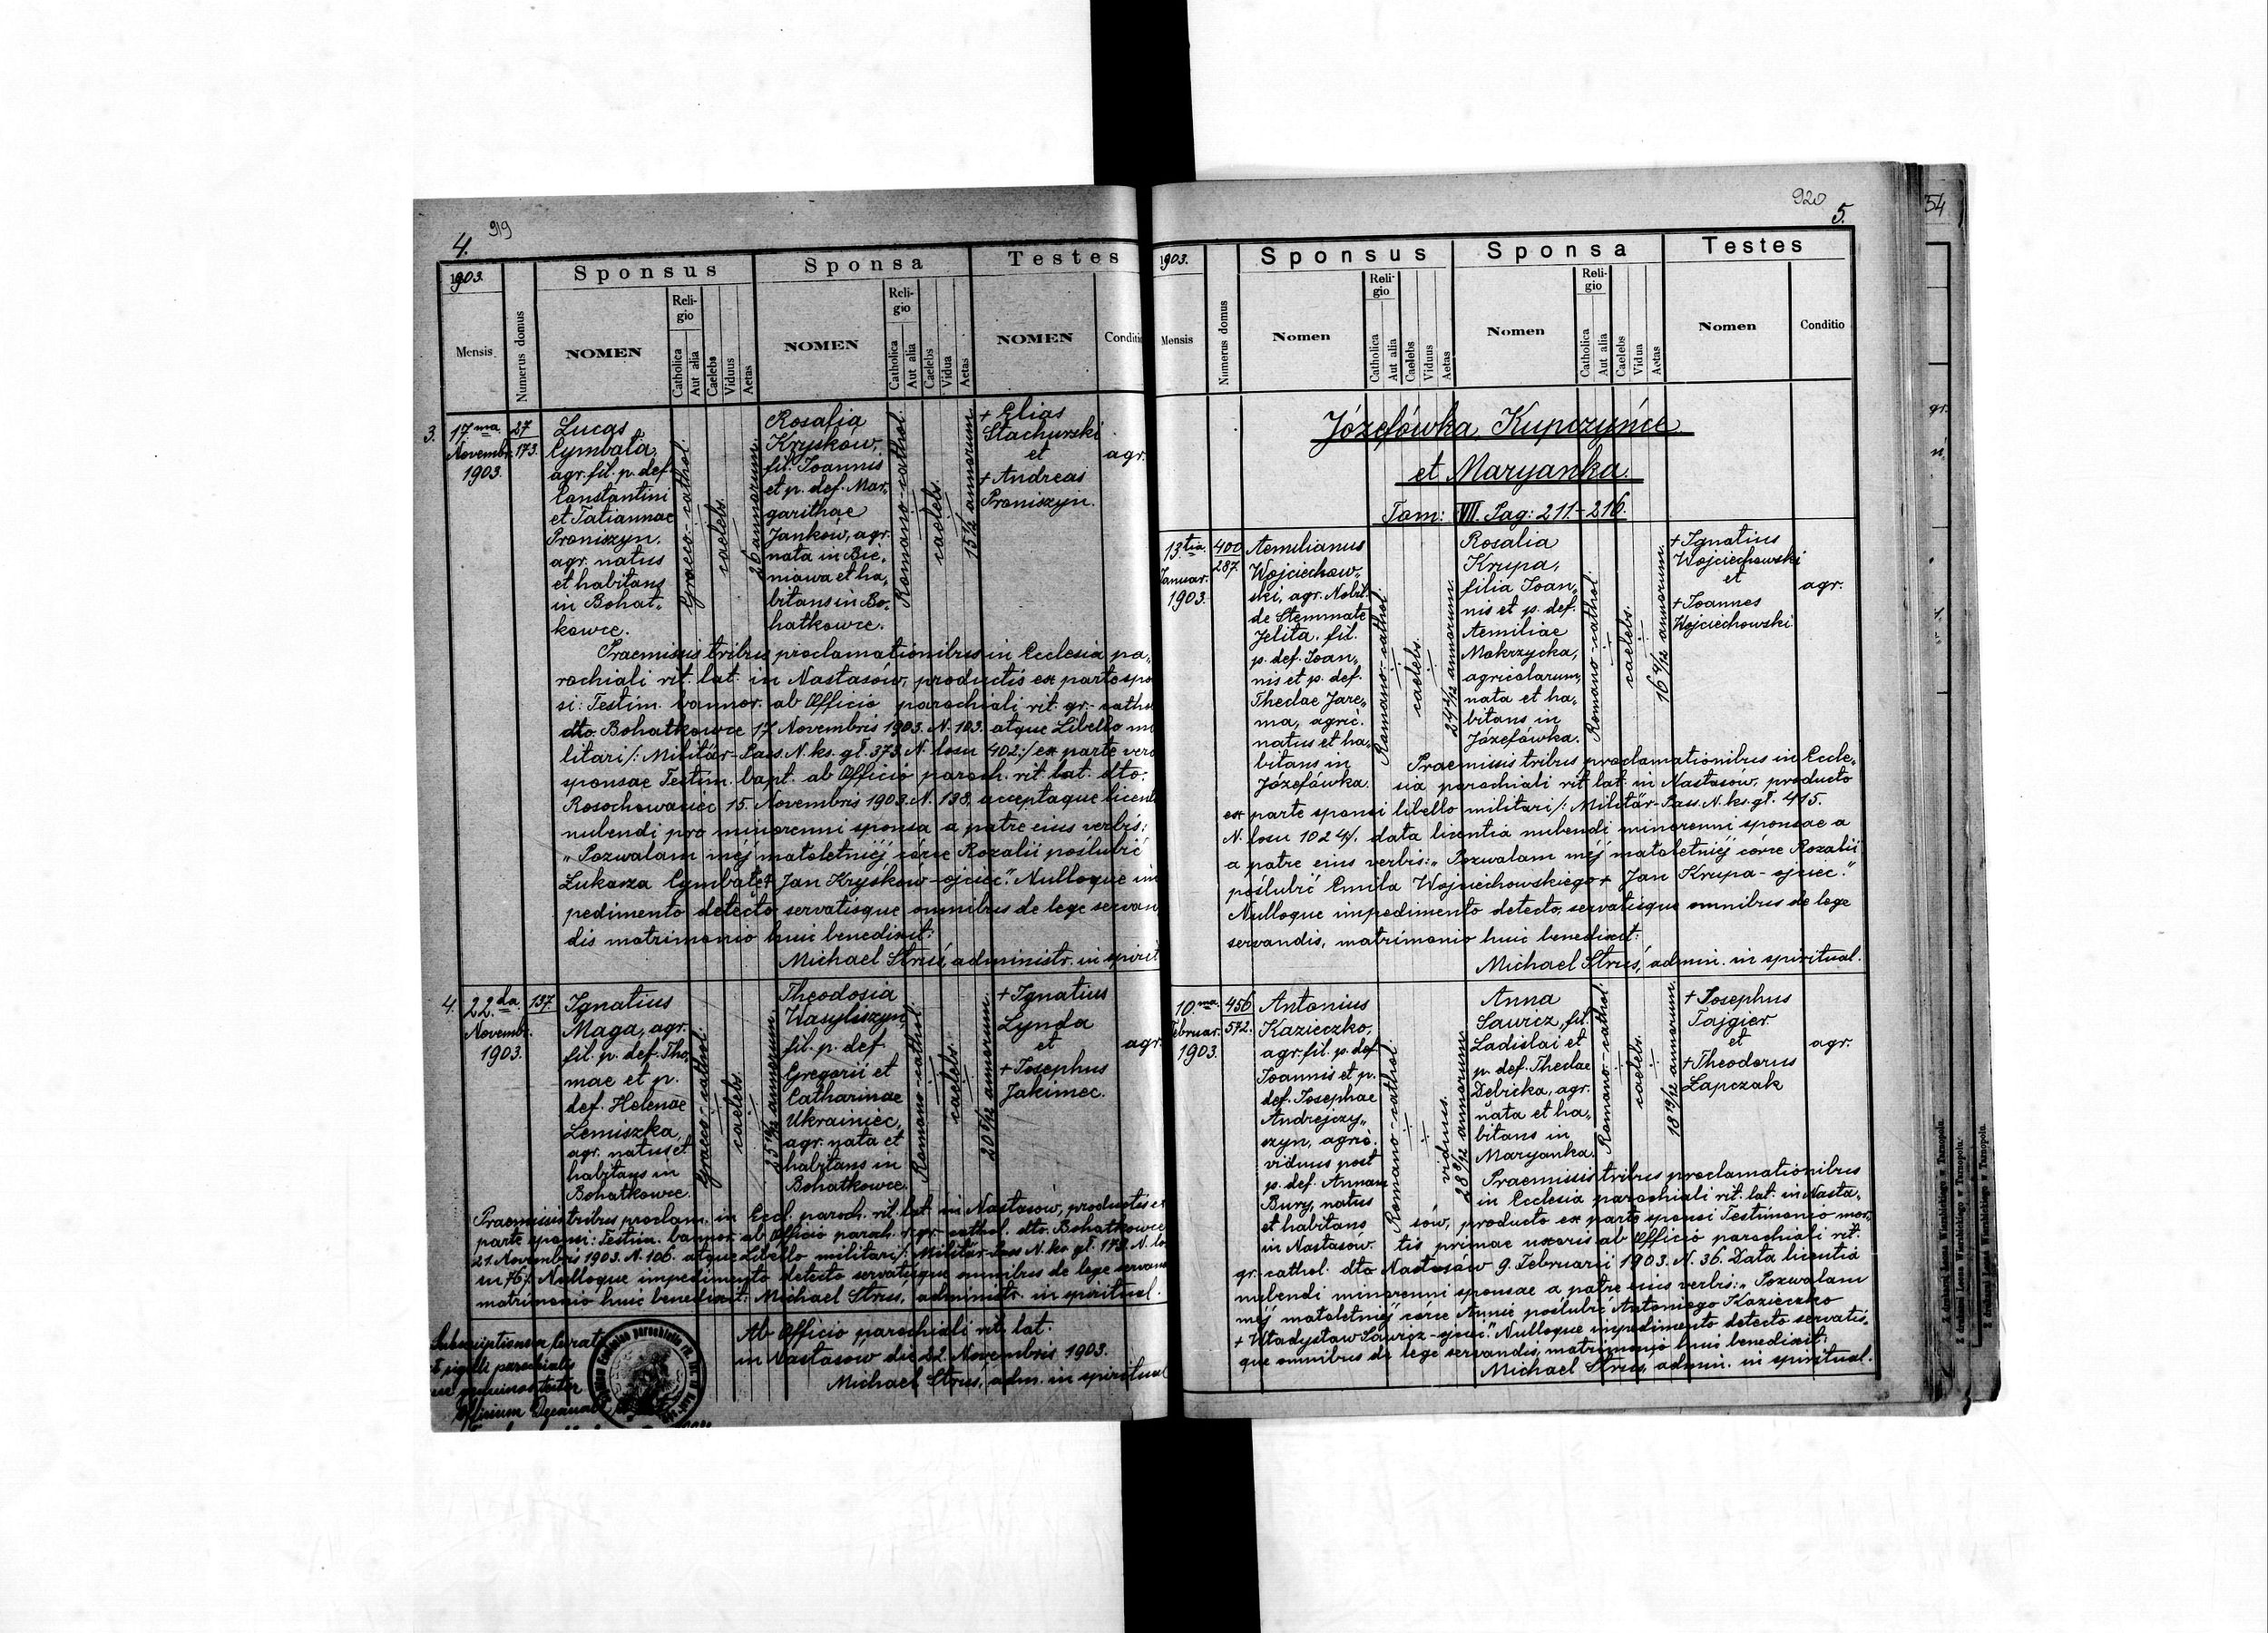 4.
919
1903.
Mensis
Numerus domus
Sponsus
NOMEN
Religio
Catholica
Aut alia
Caelebs
Viduus
Aetas
Sponsa
NOMEN
Religio
Catholica
Aut alia
Caelebs
Vidua
Aetas
Testes
NOMEN
Conditi
3.
17ma
Novembr.
1903.
27
173.
Lucas
Cymbała,
agr. fil. p. def.
Constantini
et Tatiannae
Proniszyn,
agr. natus
et habitans
in Bohat„
kowce.
Graeco-cathol.
caelebs.
26 annorum.
Rosalia
Kryśków,
fil. Joannis
et p. def. Mar„
garithae
Janków, agr.
nata in Bie„
niawa et ha„
bitans in Bo„
hatkowce.
Romano-cathol.
caelebs.
annorum.
+ Elias
Stachurski
et
+ Andreas
Proniszyn.
agr.
Praemissis tribus proclamationibus in Ecclesia pa„
rochiali rit. lat. in Nastasów, productis ex parte spo
si: Testim. bannor. ab Officio parochiali rit. gr.-catho
dto. Bohatkowce 17 Novembris 1903. N. 103. atque Libello mi
litari /: Militär-Pass. N. ks. gł. 378. N. losu 402:/ ex parte vero
sponsae Testim. bapt. ab Officio paroch. rit. lat. dto.
Rosochowaciec 15. Novembris 1903. N. 138, acceptaque licent
nubendi pro minorenni sponsa a patre eius verbis:
„Pozwalam méj małoletniéj córce Rozalii poślubić
Łukasza Cymbałę + Jan Kryśków - ojciec". Nulloque im
pedimento detecto servatisque omnibus de lege servan
dis matrimonio huic benedixit:
Michael Struś, administr. in spirit
4.
22.da
Novembr.
1903.
137.
Ignatius
Maga, agr.
fil. p. def. Tho„
mae et p.
def. Helenae
Lemiszka,
agr. natus et
habitans in
Bohatkowce.
Graeco-cathol.
caelebs.
annorum.
Theodosia
Wasyliszyn,
fil. p. def.
Gregorii et
Catharinae
Ukrainiec,
agr. nata et
habitans in
Bohatkowce.
Romano-cathol.
caelebs.
annorum.
+ Ignatius
Lynda
et
+ Josephus
Jakimec.
agr.
Praemissis tribus proclam. in Eccl. paroch. rit. lat. in Nastasów, productis ex
parte sponsi: Testim. bannor. ab Officio paroch. r. gr.-cathol. dto. Bohatkowce
21. Novembris 1903. N. 106. atque Libello militari /: Militär-Pass N. ks. gł. 173. N. lo
su 76:/. Nulloque impedimento detecto servatisque omnibus de lege servan
matrimonio huic benedixit: Michael Struś, administr. in spiritual.
Ab Officio parochiali rit. lat.
in Nastasów die 22. Novembris 1903.
Michael Struś, adm. in spiritual
Subscriptionem Curati
et sigilli parochialis
Officium Decanale
920
5.
1903.
Mensis
Numerus domus
Sponsus
Nomen
Religio
Catholica
Aut alia
Caelebs
Viduus
Aetas
Sponsa
Nomen
Religio
Catholica
Aut alia
Caelebs
Vidua
Aetas
Testes
Nomen
Conditio
Józefówka, Kupczyńce
et Maryanka.
Tom: VII. Pag: 211-216.
13.tia
Januar.
1903.
400
287.
Aemilianus
Wojciechow„
ski, agr. Nobil.
de Stemmate
Jelita, fil.
p. def. Joan„
nis et p. def.
Theclae Jare„
ma, agric.
natus et ha„
bitans in
Józefówka.
Romano-cathol.
caelebs.
annorum.
Rosalia
Krupa,
filia Joan„
nis et p. def.
Aemiliae
Mokrzycka,
agricolarum,
nata et ha„
bitans in
Józefówka.
Romano-cathol.
caelebs.
annorum.
+ Ignatius
Wojciechowski
et
+ Joannes
Wojciechowski
agr.
Praemissis tribus proclamationibus in Eccle„
sia parochiali rit. lat. in Nastasów, producto
ex parte sponsi libello militari /: Militär-Pass. N. ks. gł. 415.
N. losu 1024:/. data licentia nubendi minorenni sponsae a
a patre eius verbis: „Pozwalam méj małoletniéj córce Rozalii
poślubić Emila Wojciechowskiego + Jan Krupa - ojciec."
Nulloque impedimento detecto, servatisque omnibus de lege
servandis, matrimonio huic benedixit:
Michael Struś, admin. in spiritual.
10.ma
Februar.
1903.
456
572.
Antonius
Kazieczko,
agr. fil. p. def.
Joannis et p.
def. Josephae
Andrejczy„
szyn, agric.
viduus post
p. def. Annam
Bury, natus
et habitans
in Nastasów.
Romano-cathol.
viduus.
28 8/12 annorum.
Anna
Sawicz, fil.
Ladislai et
p. def. Theclae
Dębicka, agr.
nata et ha„
bitans in
Maryanka.
Romano-cathol.
caelebs.
annorum.
+ Josephus
Tajgier
et
+ Theodorus
Łapczak
agr.
Praemissis tribus proclamationibus
in Ecclesia parochiali rit. lat. in Nasta„
sów, producto ex parte sponsi Testimonio mor„
tis primae uxoris ab Officio parochiali rit.
gr.-cathol. dto Nastasów 9. Februarii 1903. N. 36. Data licentia
nubendi minorenni sponsae a patre eius verbis: „Pozwalam
méj małoletniéj córce Annie poślubić Antoniego Kazieczko
+ Władysław Sawicz - ojciec." Nulloque impedimento detecto servatis„
que omnibus de lege servandis, matrimonio huic benedixit:
Michael Struś, admin. in spiritual.
54
Z drukarni Leona Wierzbickiego w Tarnopolu.
Z drukarni Leona Wierzbickiego w Tarnopolu.
Z drukarni Leona Wierzbickiego w Tarnopolu.